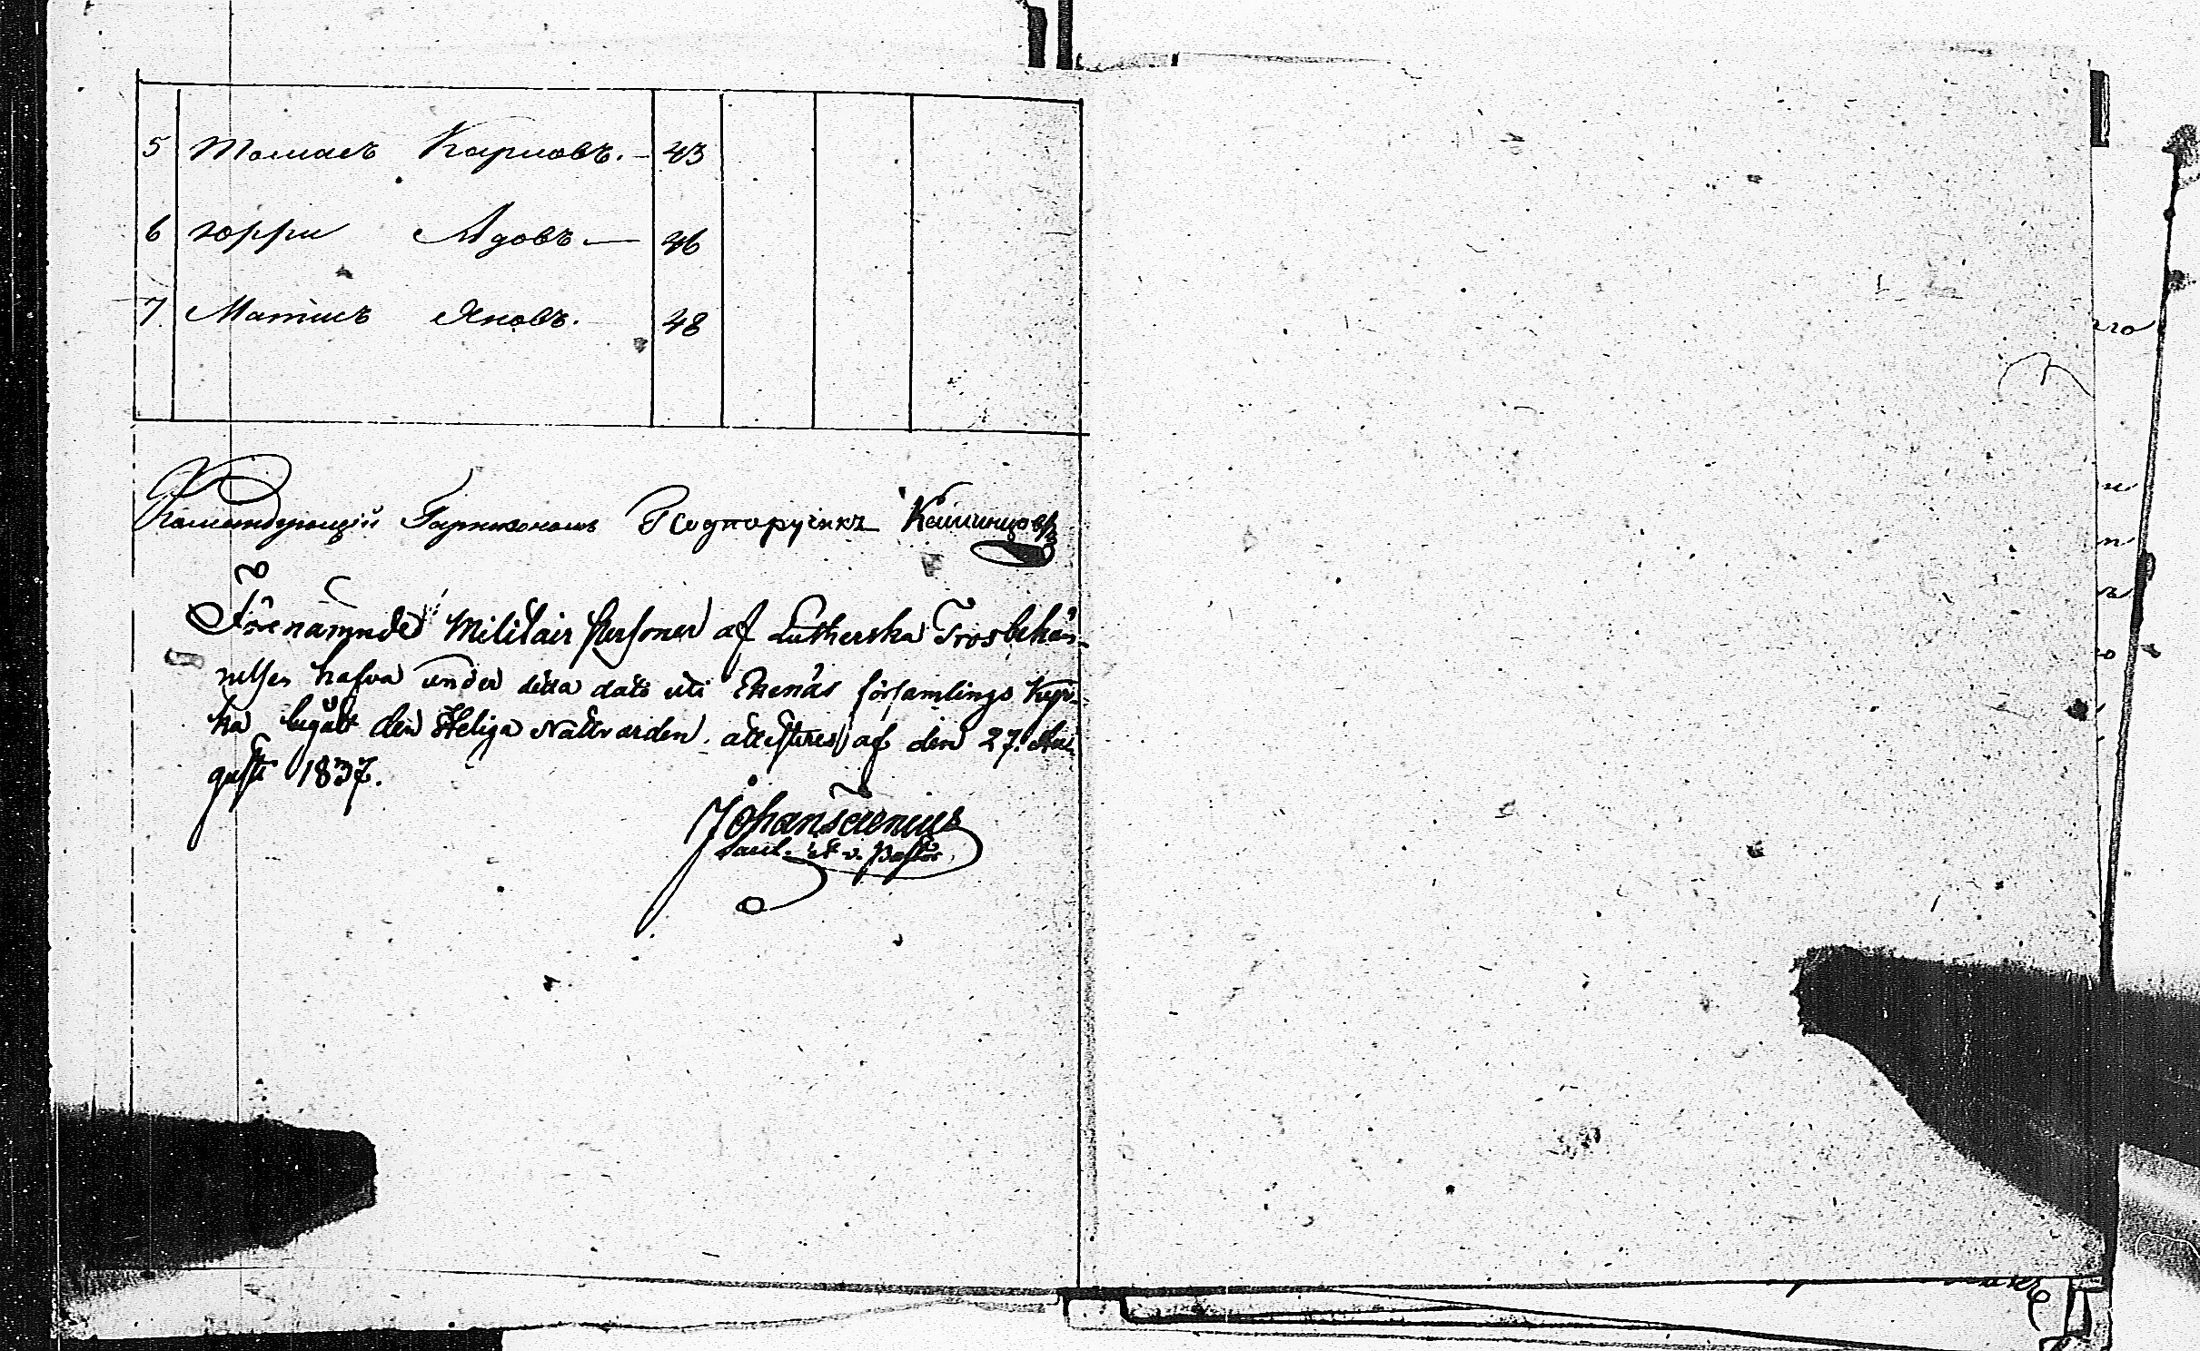 5 Томасъ Карловъ. — 43
6 Юрри Адовъ — 46
7 Матисъ Яновъ. 48
Командующій Гарнизономъ Подпоручикъ
Förenämnde Militair Personer af Lutherska Trosbekän-
nelsen hafva under detta dato uti Ekenäs församlings Kyr-
ka begått den Heliga Nattvarden, attesteras af den 27. Au-
gusti 1837.
Johan
v. Pastor